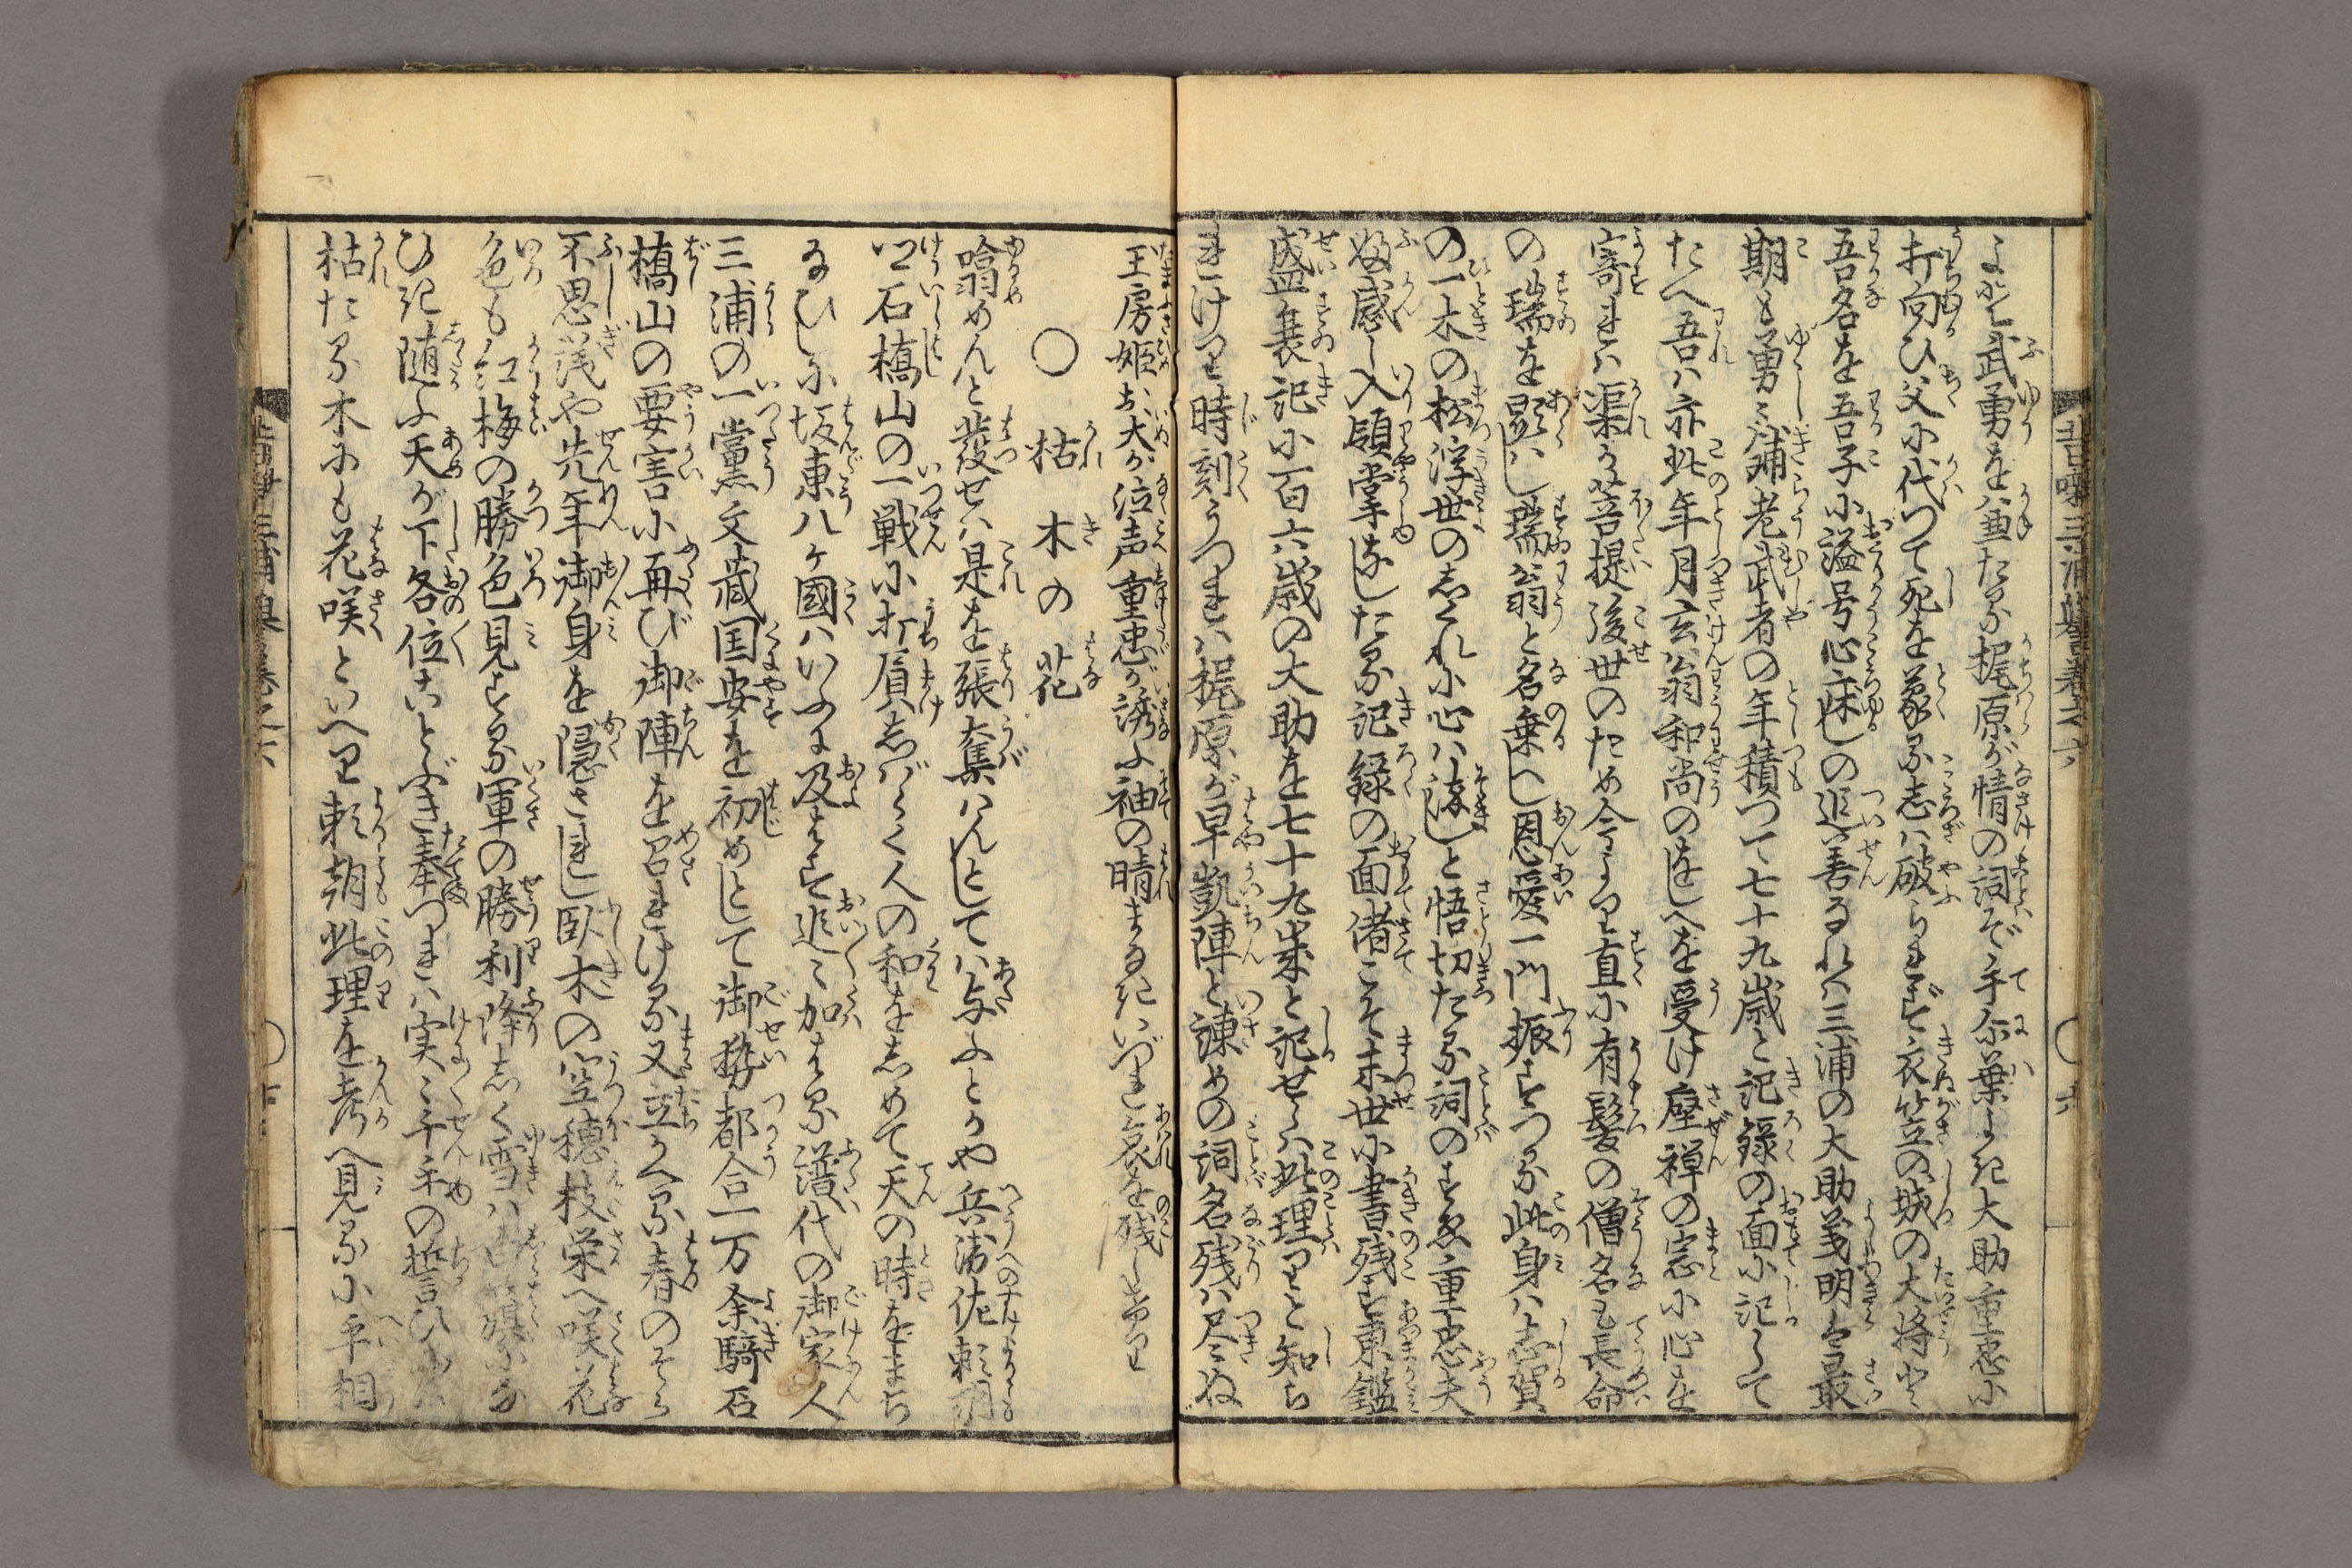 よれど武勇を兼たる梶原が情の詞ぞ手尓葉よき大助重忠に
打向ひ父に代つて死を蒙る志は破られず衣笠の城の大将と
吾名を吾子に謚号心床しの追善なれバ三浦の大助義明も最
期も勇々鋪老武者の年積つて七十九歳と記録の面に記して
たべ吾ハ亦此年月玄翁和尚のをしへを受け座禅の窓に心を
寄れバ渠が菩提後世のため今より直に有髪の僧名も長命
の瑞を顕ハし瑞翁と名乗べし恩愛一門振すつる此身ハ志賀
の一木の松浮世のしくれに心ハ染じと悟切たる詞のすゑ重忠夫
婦感じ入領掌なしたる記録の面偖こそ末世に書残す東鑑
盛衰記に百六歳の大助を七十九歳と記せしハ此理りと知ら
れけり時刻うつれバ梶原が早凱陣と諫めの詞名残ハ尽ぬ
玉房姫お犬が泣声重忠が誘ふ袖の晴まなきいづれ哀を残しけり
○枯木の花
噏めんと發せハ是を張奪はんとしてハ与ふとかや兵衛佐頼朝
公石橋山の一戦に打負しばらく人の和をしめて天の時をまち
なひしに坂東八ヶ國ハいふに及ばず追々加はる譜代の御家人
三浦の一黨文蔵国安を初めとして御勢都合一万余騎石
橋山の要害に再び御陣を召れける又立かへる春のそら
不思議や先年御身を隠されし臥木の空穂枝栄へ咲花
色も紅梅の勝色見する軍の勝利降しく雪ハ白旗に
ひき随ふ天が下各位ことぶき奉つれハ実々千手の誓ひに
枯たる木にも花咲といへり頼朝此理を考へ見るに平相